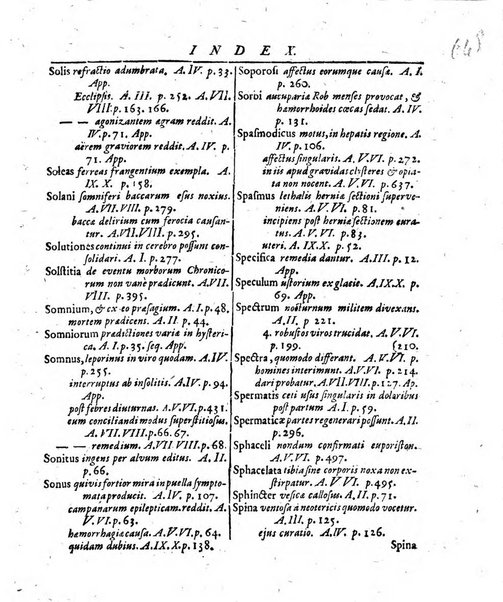 INDEX.
Solis refractio adumbrata. A. IV. p. 33.
App.
Ecclipsis. A. III. p. 252. A. VII.
VIII. p. 163. 166.
— — agonizantem ægram reddit. A.
IV. p. 71. App.
aërem graviorem reddit. A. IV. p.
71. App.
Soleas ferreas frangentium exempla. A.
IX. X. p. 158.
Solani somniferi baccarum esus noxius.
A. VII. VIII. p. 279.
bacca delirium cum ferocia causan-
tur. A. VI. VIII. p. 295.
Solutiones continui in cerebro possunt con-
solidari. A. I. p. 277.
Solstitia de eventu morborum Chronico-
rum non vanè prædicunt. A. VII
VIII. p. 395.
Somnium, & ex eo præsagium. A. I. p. 48.
mortem prædicens. A. II. p. 44.
Somniorum prædictiones variæ in hysteri-
ca. A. I. p. 35. seq. App.
Somnus, leporinus in viro quodam. A. IV.
p. 255.
interruptus ab insolitis. A. IV. p. 94.
App.
post febres diuturnas. A. V. VI. p. 431.
eum conciliandi modus superstitiosus.
A. VII. VIII. p. 66. 67.
— — remedium. A. VII VIII. p. 68.
Sonitus ingens per alvum editus. A. II.
p. 66.
Sonus quivis fortior mira in puella sympto-
mata producit. A. IV. p. 107.
campanarum epilepticam reddit. A.
V. VI. p. 63.
hæmorrhagiæ causa. A. V. VI. p. 64.
quidam dubius. A. IX. X. p. 138.
Soporosi affectus eorumque causæ. A. I.
p. 260.
Sorbi aucuparia Rob menses provocat, &
hæmorrhoides cæcas sedat. A. IV.
p. 131.
Spasmodicus motus, in hepatis regione. A.
IV. p. 106.
affectus singularis. A. V. VI. p. 272.
in iis apud gravidas clysteres & opia-
ta non nocent. A. V. VI. p. 637.
Spasmus lethalis herniæ sectioni superve-
niens. A. V. VI. p. 81.
incipiens post herniæ sectionem cura-
tus. A. V. VI. p. 81.
uteri. A. IX. X. p. 52.
Specifica remedia dantur. A. III. p. 12.
App.
Speculum ustorium ex glacie. A. IX. X. p.
69. App.
Spectrum nocturnum milites divexans.
A. II p 221.
4. robustos viros trucidat. A. V. VI.
p. 199. [210.
Spectra, quomodo differant. A. V. VI. p.
homines interimunt. A. V. VI. p. 214.
dari probatur. A. VII. VIII. p. 127. Ap.
Spermatis ceti usus singularis in doloribus
post partum A. I. p. 59.
Spermaticæ partes regenerari possunt. A. II.
p. 296.
Sphaceli nondum confirmati euporiston.
A. V. VI. p. 497.
Sphacelata tibia sine corporis noxa exa-
stirpatur. A. V. VI. p. 497.
Sphincter vesicæ callosus. A. II. p. 71.
Spina ventosa à neotericis quomodo vocetur.
A. III. p. 125.
ejus curatio. A. IV. p. 126.
Spina